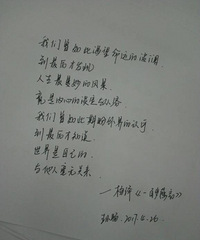 我们曾如此渴望命运的波澜
到最后才发现
人生最曼妙的风景
竟是内心的淡定与从容
我们曾如此期盼外界的认可
到最后才知道
世界是自己的
与他人毫无关系
—杨绛《一百岁感言》
2017.4.26